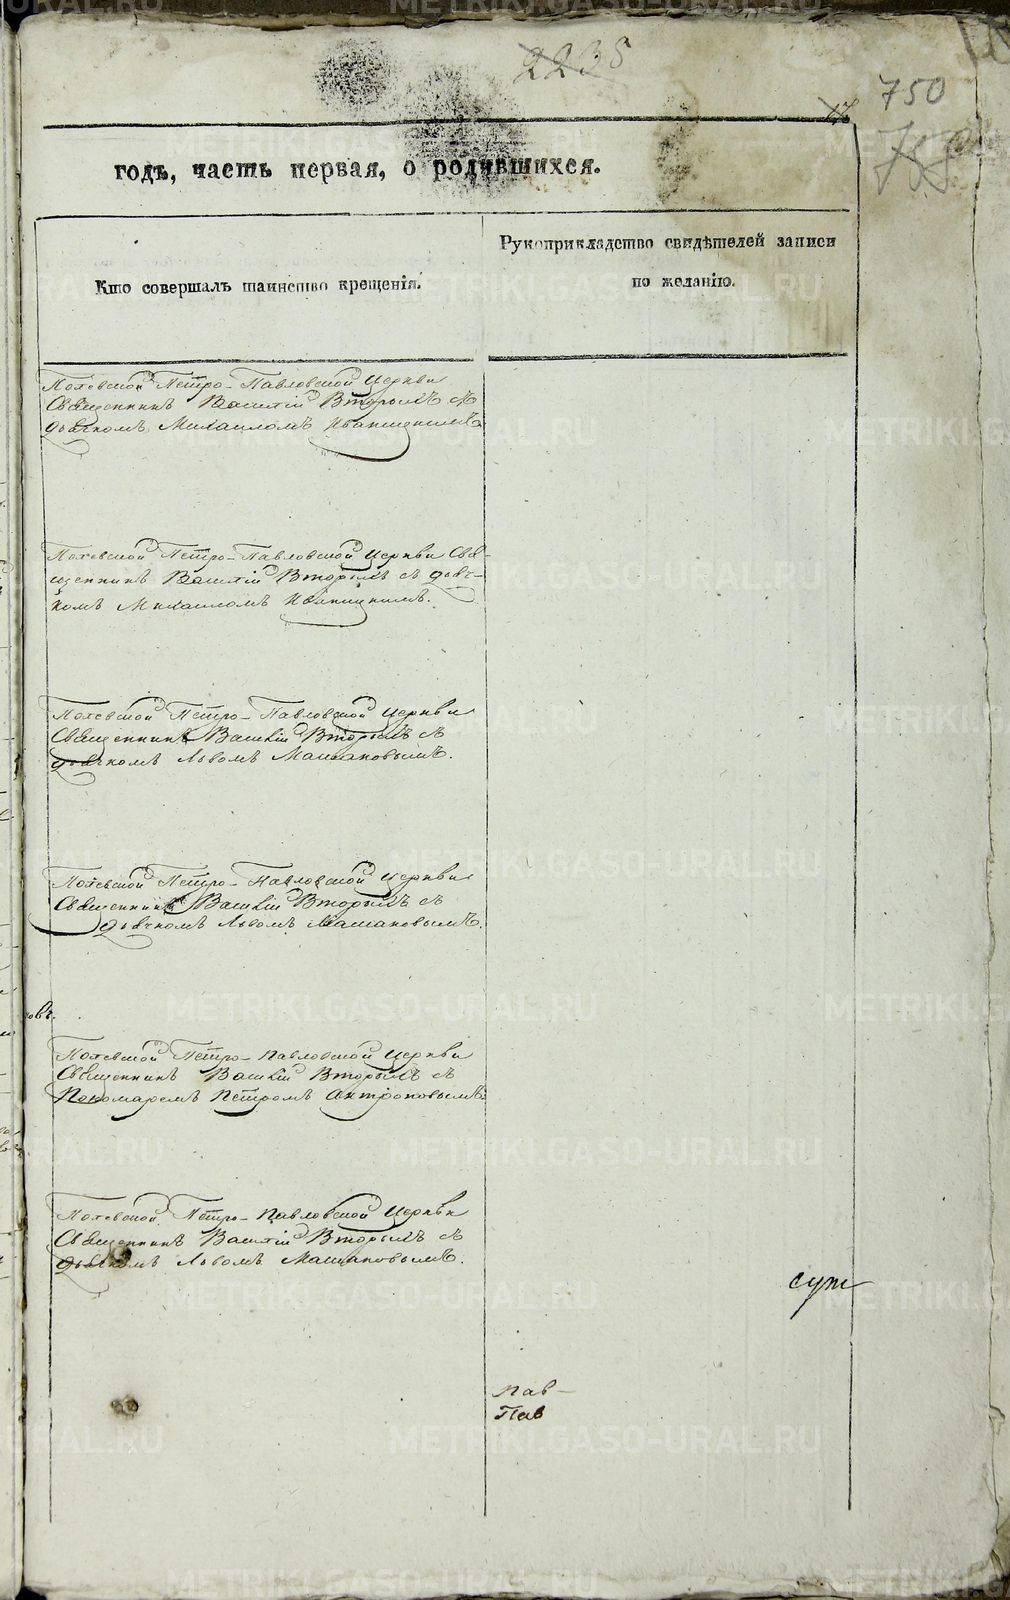 2235
17
750
годъ, часть первая, о родившихся.
Кто совершалъ таинство крещенія.
Рукоприкладство свидѣтелей записи
по желанію.
Полевской Петро-Павловской Церкви
Священникъ Василій Вторыхъ съ
дьячкомъ Михаиломъ Иваницкимъ
Полевской Петро-Павловской Церкви Свя-
щенникъ Василій Вторыхъ съ дьяч-
комъ Михаиломъ Иваницкимъ.
Полевской Петро-Павловской Церкви
Священникъ Василій Вторыхъ съ
дьячкомъ Львомъ Машановымъ.
Полевской Петро-Павловской Церкви
Священникъ Василій Вторыхъ съ
дьячкомъ Львомъ Машановымъ.
Полевской Петро-Павловской Церкви
Священникъ Василій Вторыхъ съ
Пономаремъ Петромъ Антроповымъ.
Полевской Петро-Павловской Церкви
Священникъ Василій Вторыхъ съ
дьячкомъ Львомъ Машановымъ.
Пав-
Пав
METRIKI.GASO-URAL.RU